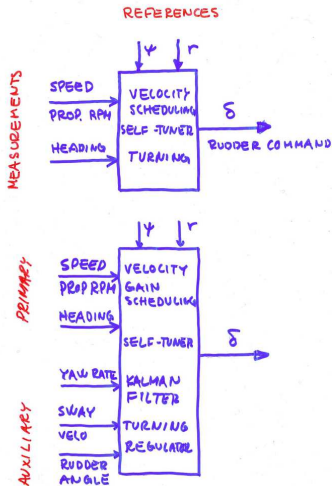 REFERENCES
ψ r
MEASUREMENTS
SPEED
PROP. RPM
HEADING
VELOCITY
SCHEDULING
SELF-TUNER
TURNING
δ
RUDDER COMMAND
ψ r
PRIMARY
SPEED
PROP RPM
HEADING
AUXILIARY
YAW RATE
SWAY
VELO
RUDDER
ANGLE
VELOCITY
GAIN
SCHEDULING
SELF-TUNER
KALMAN
FILTER
TURNING
REGULATOR
δ